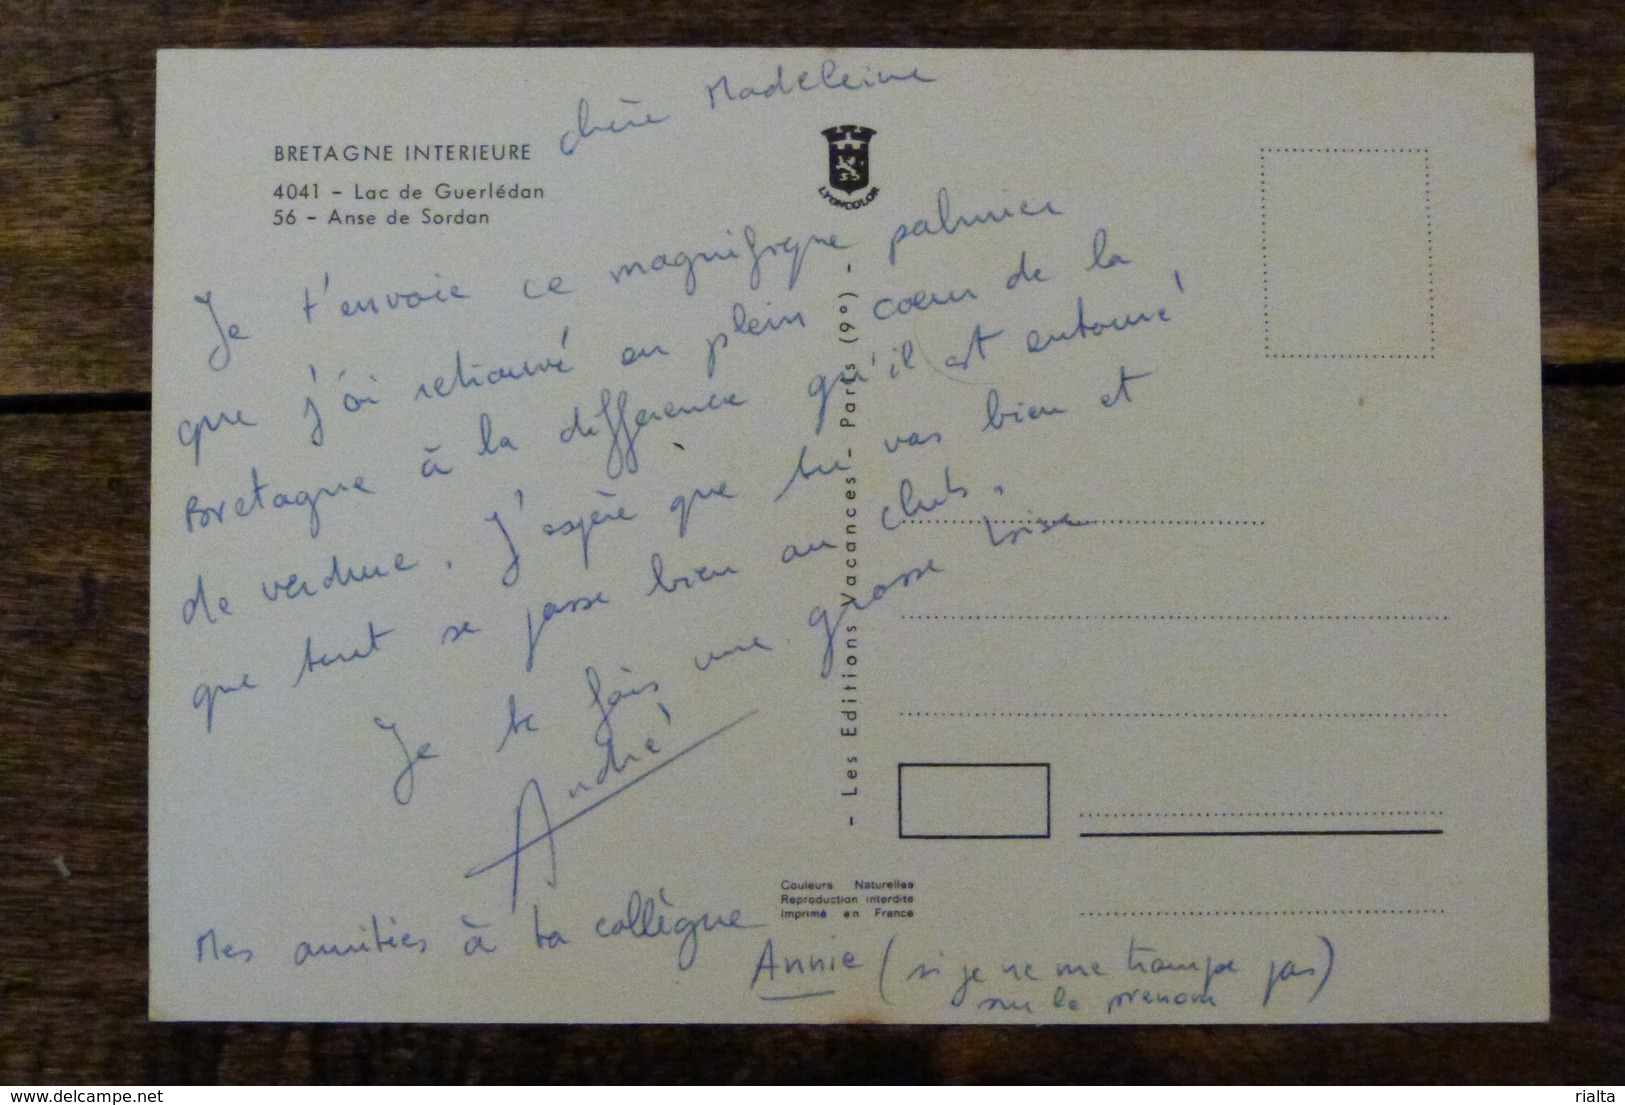 chère Madeleine
BRETAGNE INTERIEURE
4041 - Lac de Guerlédan
56 - Anse de Sordan
LYONCOLOR
Je t'envoie ce magnifique palmier
que j'ai retrouvé en plein coeur de la
Bretagne à la différence qu'il est entouré
de verdure. J'espère que tu vas bien et
que tout se passe bien au club.
Je te fais une grosse bise
André
Mes amitiés à ta collègue
Annie (si je ne me trompe pas)
sur le prenom
- Les Editions Vacances - Paris (9°) -
Couleurs Naturelles
Reproduction interdite
Imprimé en France
delcampe.net
rialta